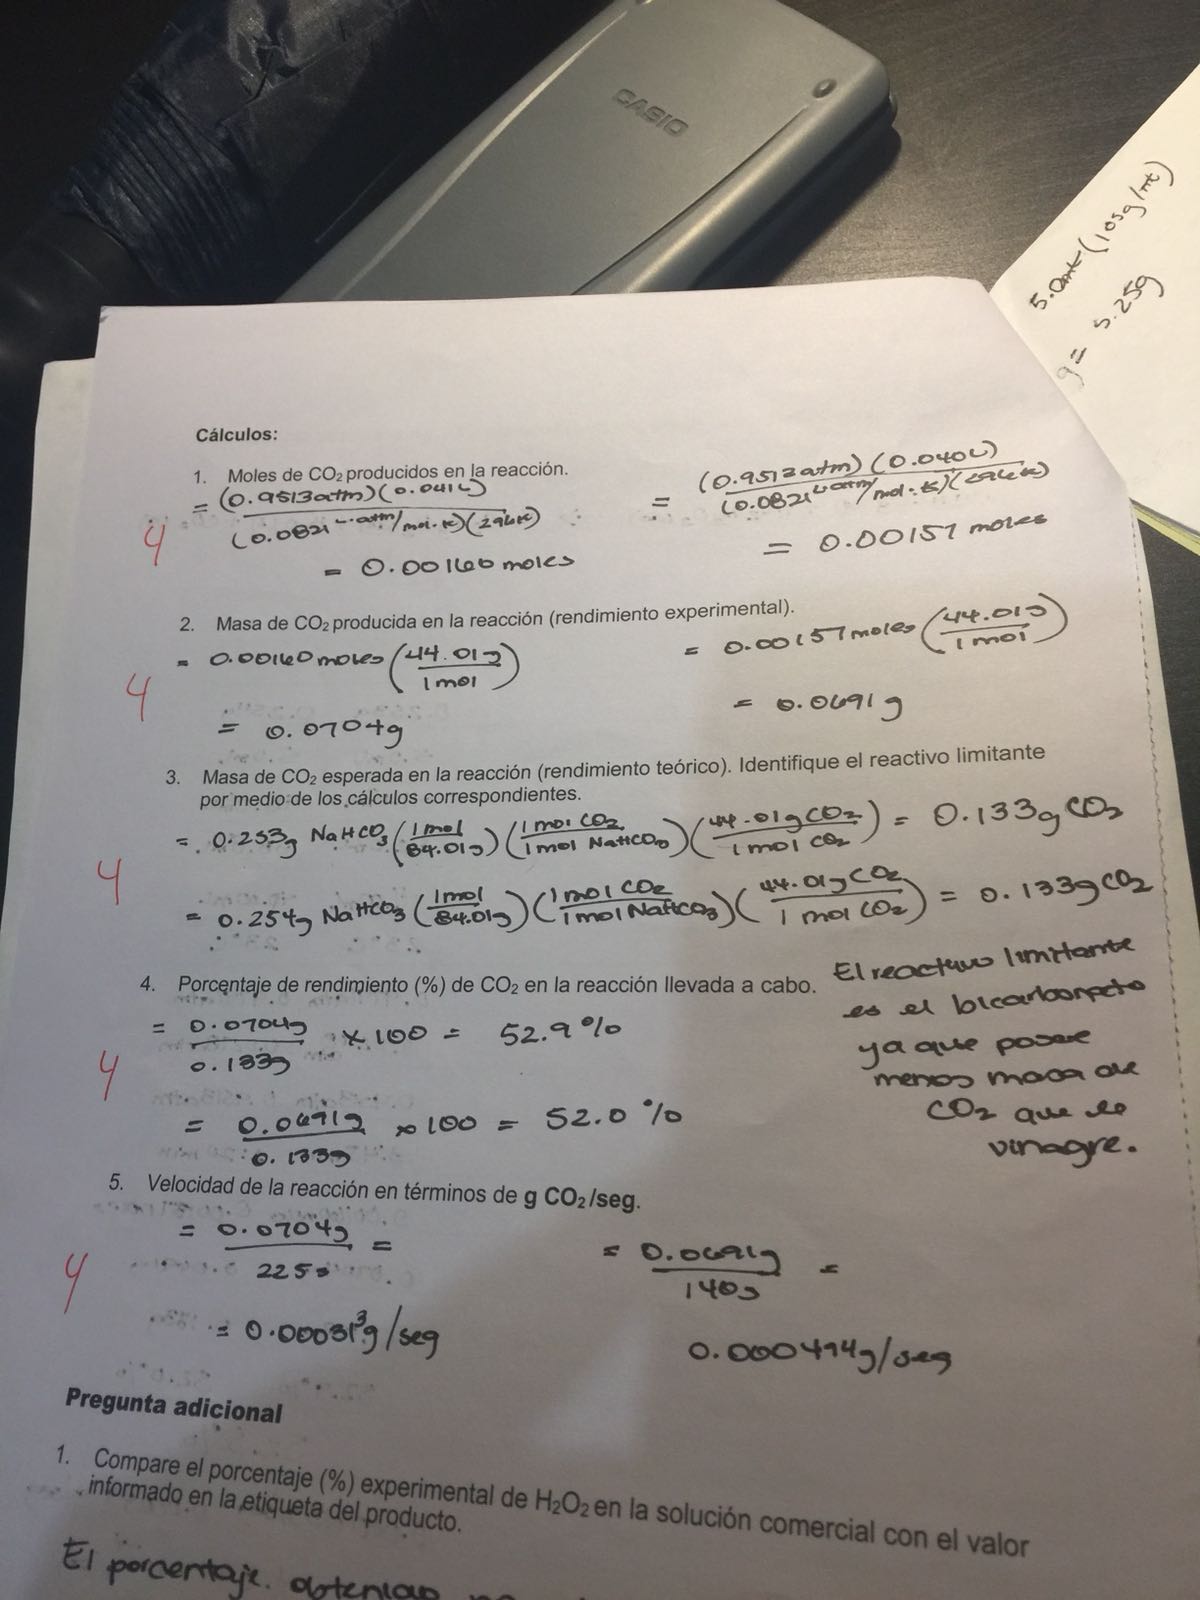 CASIO
5.0mL (1.05g/mL)
g = 5.25g
Cálculos:
1. Moles de CO₂ producidos en la reacción.
= (0.9513atm)(0.041L) / (0.0821 L·atm/mol·K)(296K)
= (0.9513atm)(0.040L) / (0.0821 L·atm/mol·K)(296K)
4
= 0.00160 moles
= 0.00157 moles
2. Masa de CO₂ producida en la reacción (rendimiento experimental).
= 0.00160 moles (44.01g / 1mol)
= 0.00157 moles (44.01g / 1mol)
4
= 0.0704g
= 0.0691g
3. Masa de CO₂ esperada en la reacción (rendimiento teórico). Identifique el reactivo limitante
por medio de los cálculos correspondientes.
= 0.253g NaHCO₃ (1mol / 84.01g) (1mol CO₂ / 1mol NaHCO₃) (44.01g CO₂ / 1mol CO₂) = 0.133g CO₂
4
= 0.254g NaHCO₃ (1mol / 84.01g) (1mol CO₂ / 1mol NaHCO₃) (44.01g CO₂ / 1 mol CO₂) = 0.133g CO₂
El reactivo limitante
es el bicarbonato
ya que posee
menos masa de
CO₂ que el
vinagre.
4. Porcentaje de rendimiento (%) de CO₂ en la reacción llevada a cabo.
= 0.0704g / 0.133g × 100 = 52.9%
4
= 0.0691g / 0.133g × 100 = 52.0%
5. Velocidad de la reacción en términos de g CO₂/seg.
= 0.0704g / 225s =
= 0.0691g / 140s =
4
= 0.000313g/seg
0.000494g/seg
Pregunta adicional
1. Compare el porcentaje (%) experimental de H₂O₂ en la solución comercial con el valor
informado en la etiqueta del producto.
El porcentaje obtenido